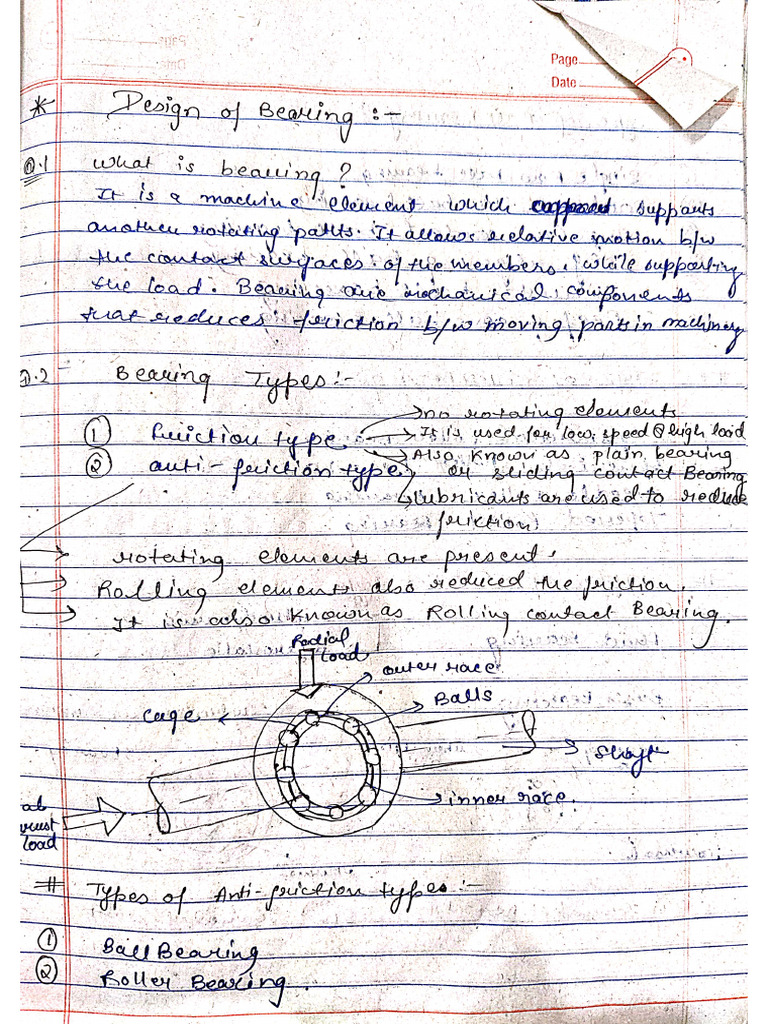 Page
Date
* Design of Bearing :-
Q.1 What is bearing?
It is a machine element which supports
another rotating parts. It allows relative motion b/w
the contact surfaces of the members, while supporting
the load. Bearing are mechanical components
that reduces friction b/w moving parts in machinery
Q.2 Bearing Types:-
① friction type
→ no rotating elements
→ It is used for low speed @ high load
→ Also known as plain bearing
or sliding contact Bearing
→ Lubricants are used to reduce
friction
② anti-friction type
→ rotating elements are present.
→ Rolling elements also reduced the friction.
→ It is also known as Rolling contact Bearing.
Radial
load
outer race
Balls
cage
shaft
inner race.
load
# Types of Anti-friction types:-
① Ball Bearing
② Roller Bearing.